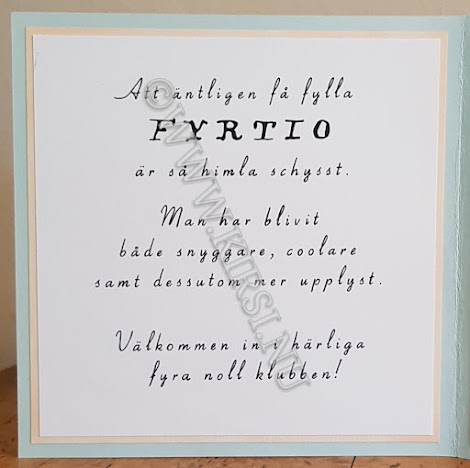 Att äntligen få fylla
FYRTIO
är så himla schysst.
Man har blivit
både snyggare, coolare
samt dessutom mer upplyst.
Välkommen in i härliga
fyra noll klubben!
©WWW.KIRSI.NU